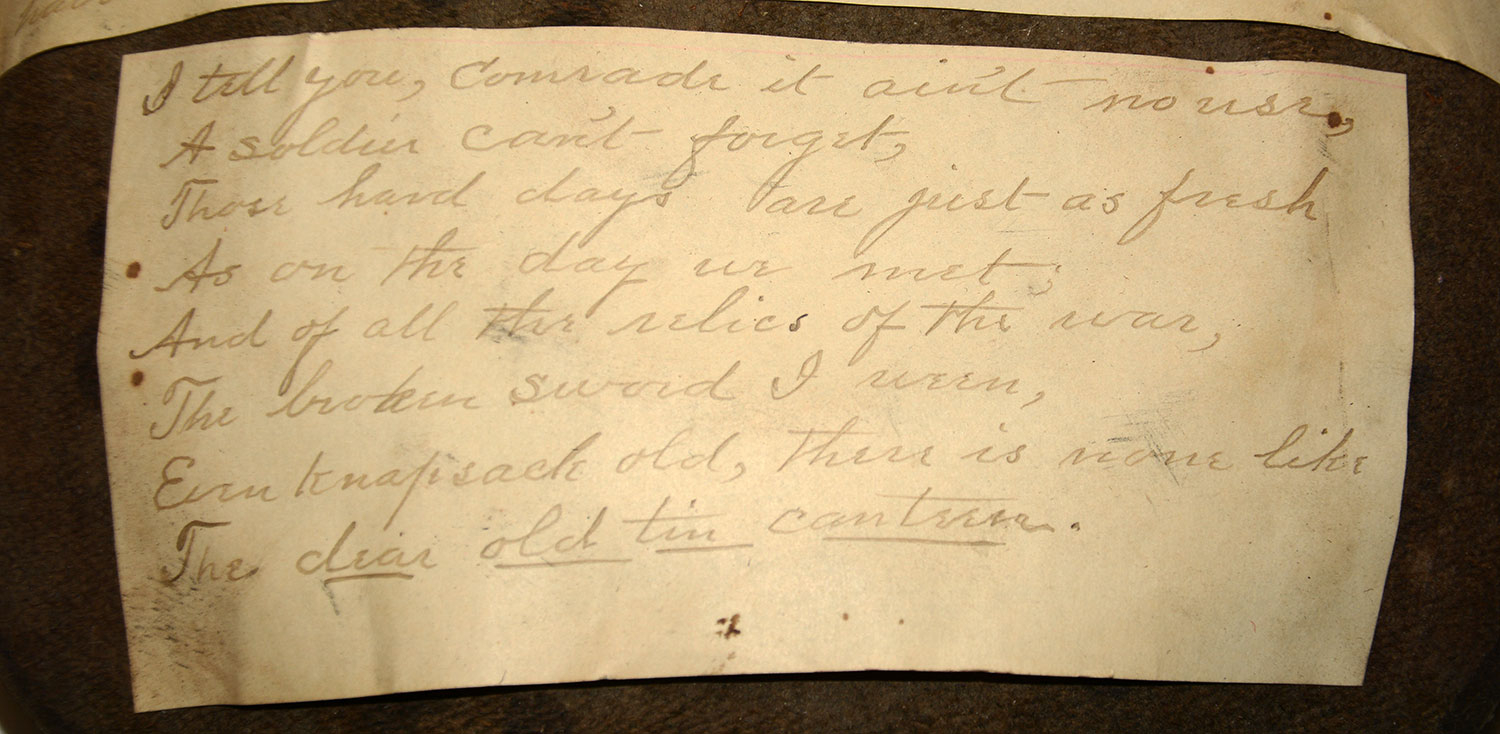 I tell you, Comrade it ain't no use,
A soldier can't forget,
Those hard days are just as fresh
As on the day we met;
And of all the relics of the war,
The broken sword I ween,
Even knapsack old, there is none like
The dear old tin canteen.